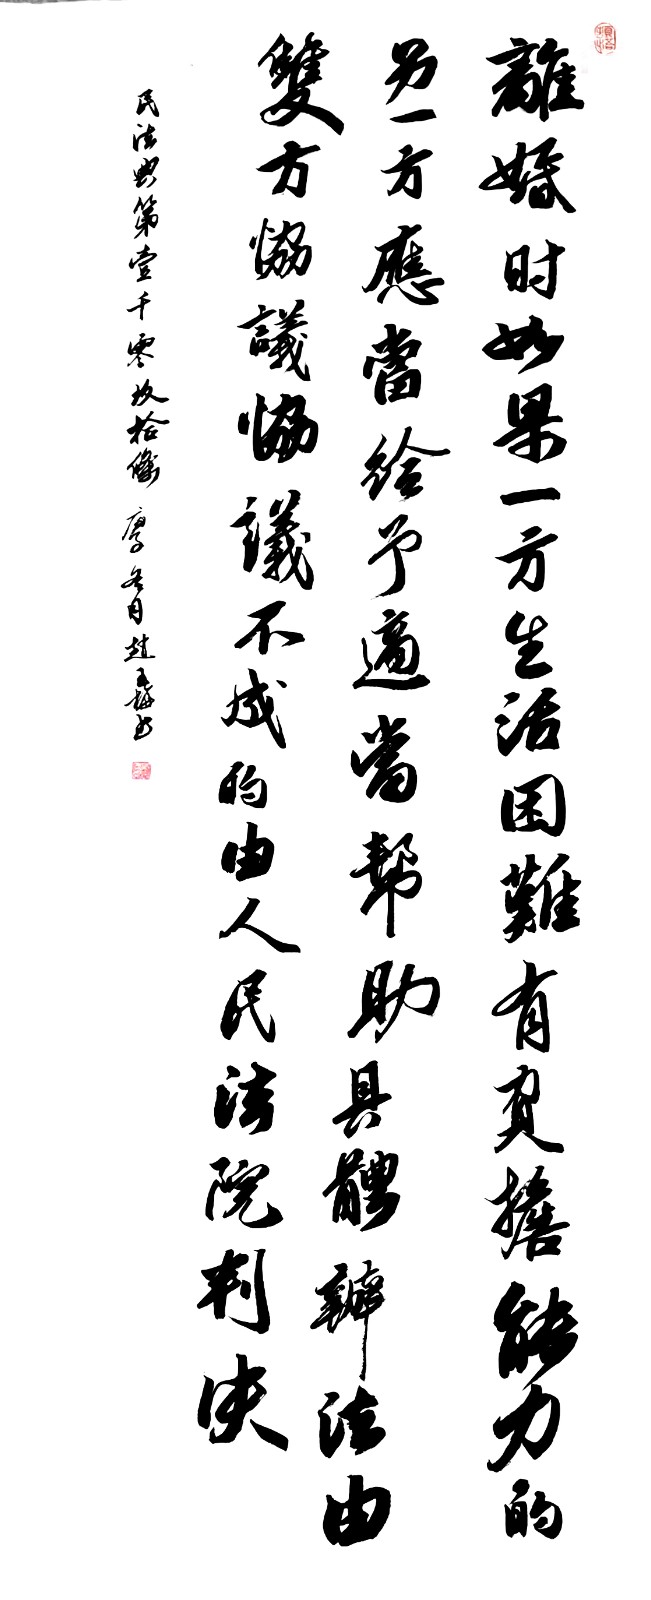 離婚时如果一方生活困難有負擔能力的
另一方應當給予適當幫助具體辦法由
雙方協議協議不成的由人民法院判决
民法典第壹千零玖拾條 冬月趙書